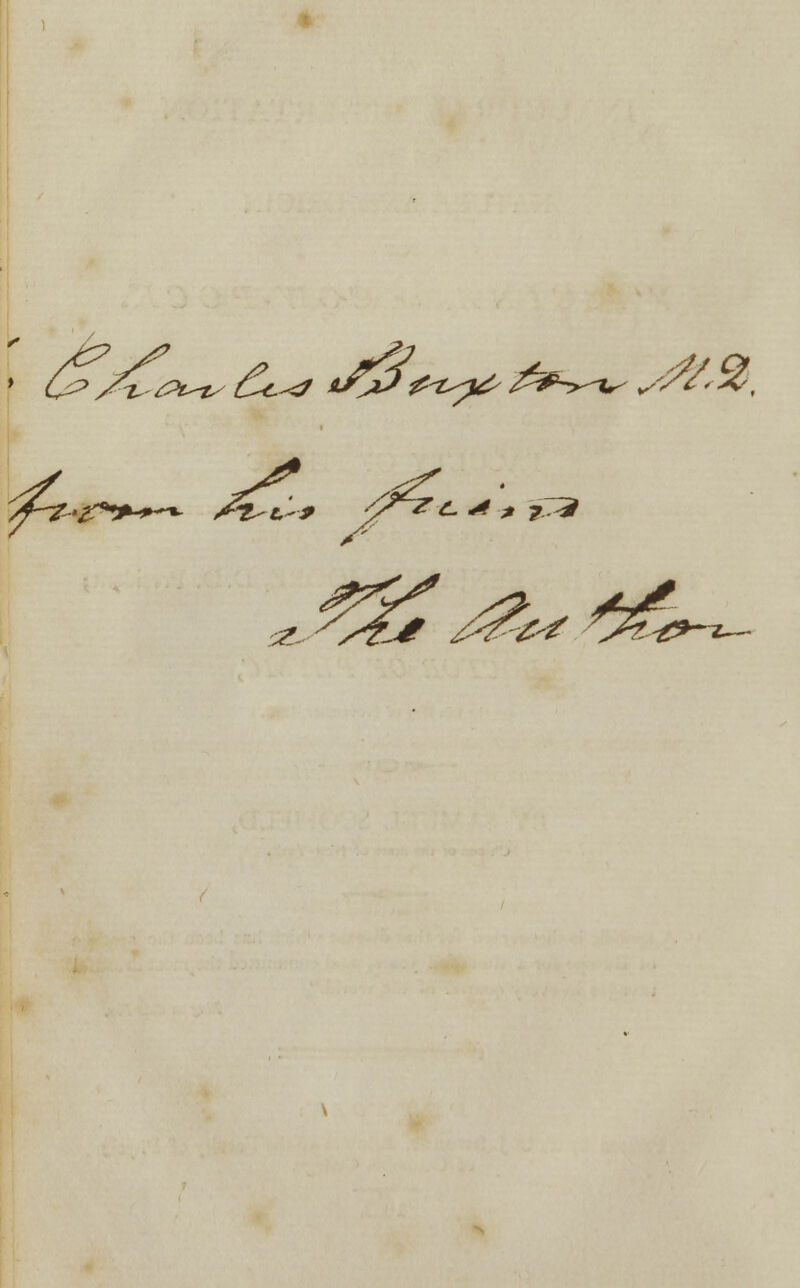 Charles Buxton M.D.
from his friend
The Author